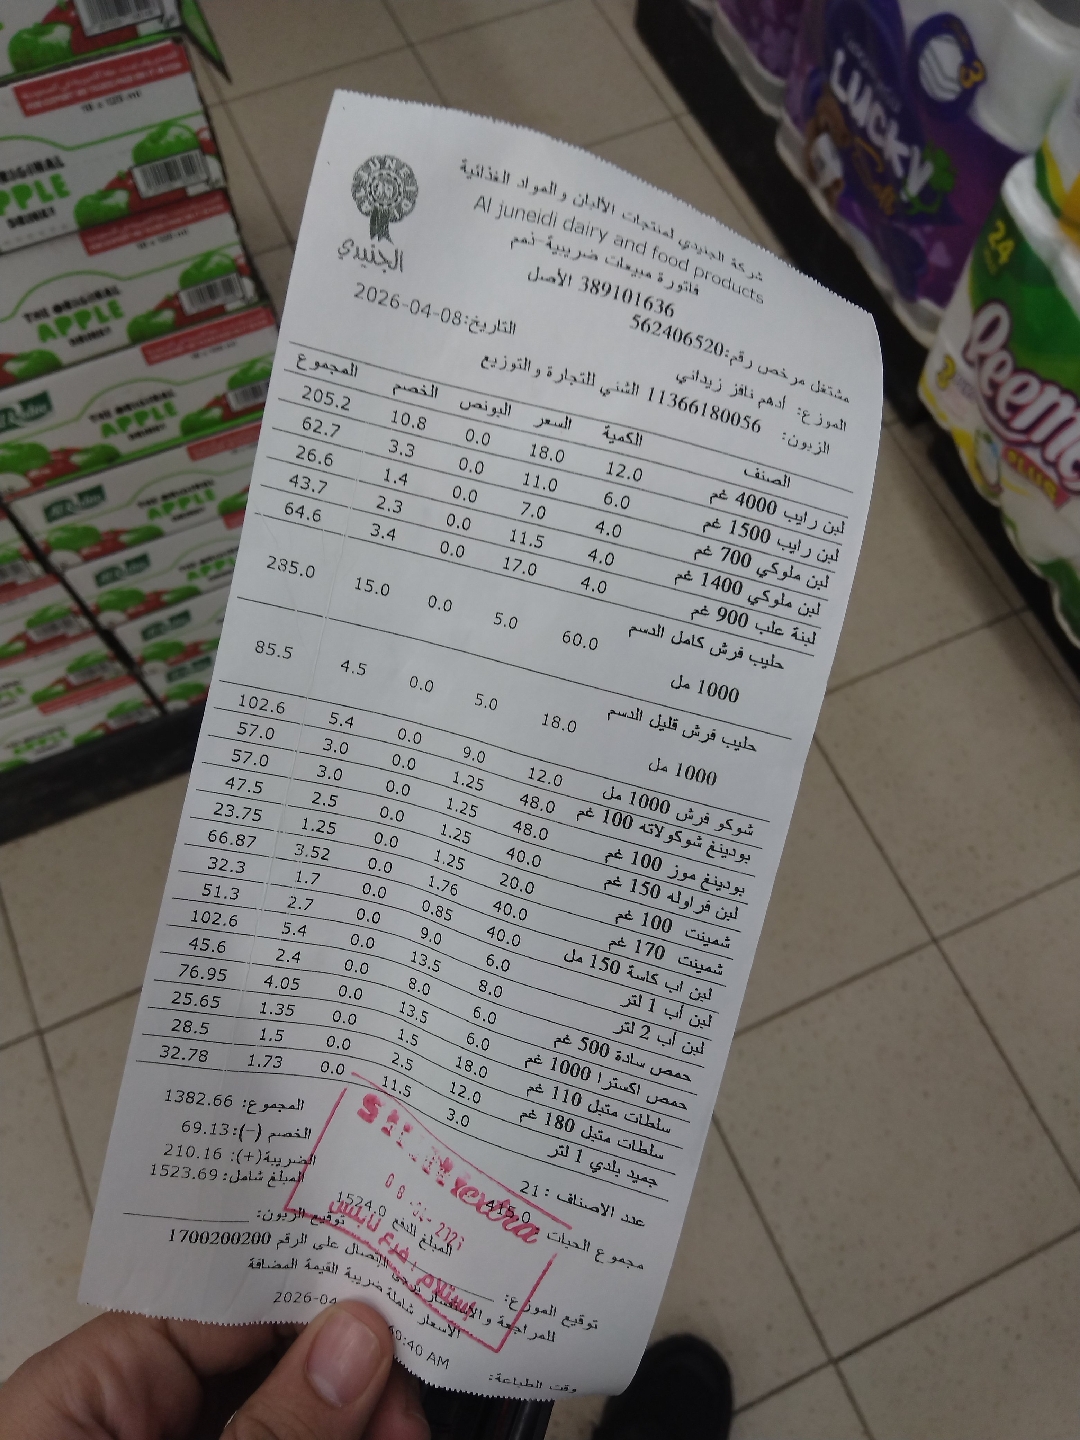 شركة الجنيدي لمنتجات الألبان والمواد الغذائية
Al juneidi dairy and food products
الجنيدي
فاتورة مبيعات ضريبية-نهم
389101636 الأصل
مشتغل مرخص رقم:562406520
التاريخ:2026-04-08
الموزع: أدهم نافز زيداني
الزبون: 11366180056 الشني للتجارة والتوزيع
الصنف الكمية السعر البونص الخصم المجموع
لبن رايب 4000 غم 12.0 18.0 0.0 10.8 205.2
لبن رايب 1500 غم 6.0 11.0 0.0 3.3 62.7
لبن ملوكي 700 غم 4.0 7.0 0.0 1.4 26.6
لبن ملوكي 1400 غم 4.0 11.5 0.0 2.3 43.7
لبنة علب 900 غم 4.0 17.0 0.0 3.4 64.6
حليب فرش كامل الدسم 60.0 5.0 0.0 15.0 285.0
1000 مل
حليب فرش قليل الدسم 18.0 5.0 0.0 4.5 85.5
1000 مل
شوكو فرش 1000 مل 12.0 9.0 0.0 5.4 102.6
بودينغ شوكولاته 100 غم 48.0 1.25 0.0 3.0 57.0
بودينغ موز 100 غم 48.0 1.25 0.0 3.0 57.0
لبن فراوله 150 غم 40.0 1.25 0.0 2.5 47.5
شمينت 100 غم 20.0 1.25 0.0 1.25 23.75
شمينت 170 غم 40.0 1.76 0.0 3.52 66.87
لبن اب كاسة 150 مل 40.0 0.85 0.0 1.7 32.3
لبن أب 1 لتر 6.0 9.0 0.0 2.7 51.3
لبن أب 2 لتر 8.0 13.5 0.0 5.4 102.6
حمص سادة 500 غم 6.0 8.0 0.0 2.4 45.6
حمص اكسترا 1000 غم 6.0 13.5 0.0 4.05 76.95
سلطات متبل 110 غم 18.0 1.5 0.0 1.35 25.65
سلطات متبل 180 غم 12.0 2.5 0.0 1.5 28.5
جميد بلدي 1 لتر 3.0 11.5 0.0 1.73 32.78
عدد الاصناف : 21
المجموع: 1382.66
مجموع الحبات : 415.0
الخصم (-):69.13
الضريبة(+): 210.16
المبلغ شامل: 1523.69
المبلغ للدفع 1524.0
extra
إستلام : فرع نابلس
توقيع الزبون:
توقيع الموزع:
للمراجعة والإستفسار يرجى الإتصال على الرقم 1700200200
الأسعار شاملة ضريبة القيمة المضافة
وقت الطباعة:
40:40 AM
2026-04
THE ORIGINAL
APPLE
DRINK!
LUCKY
3
24
PLUS